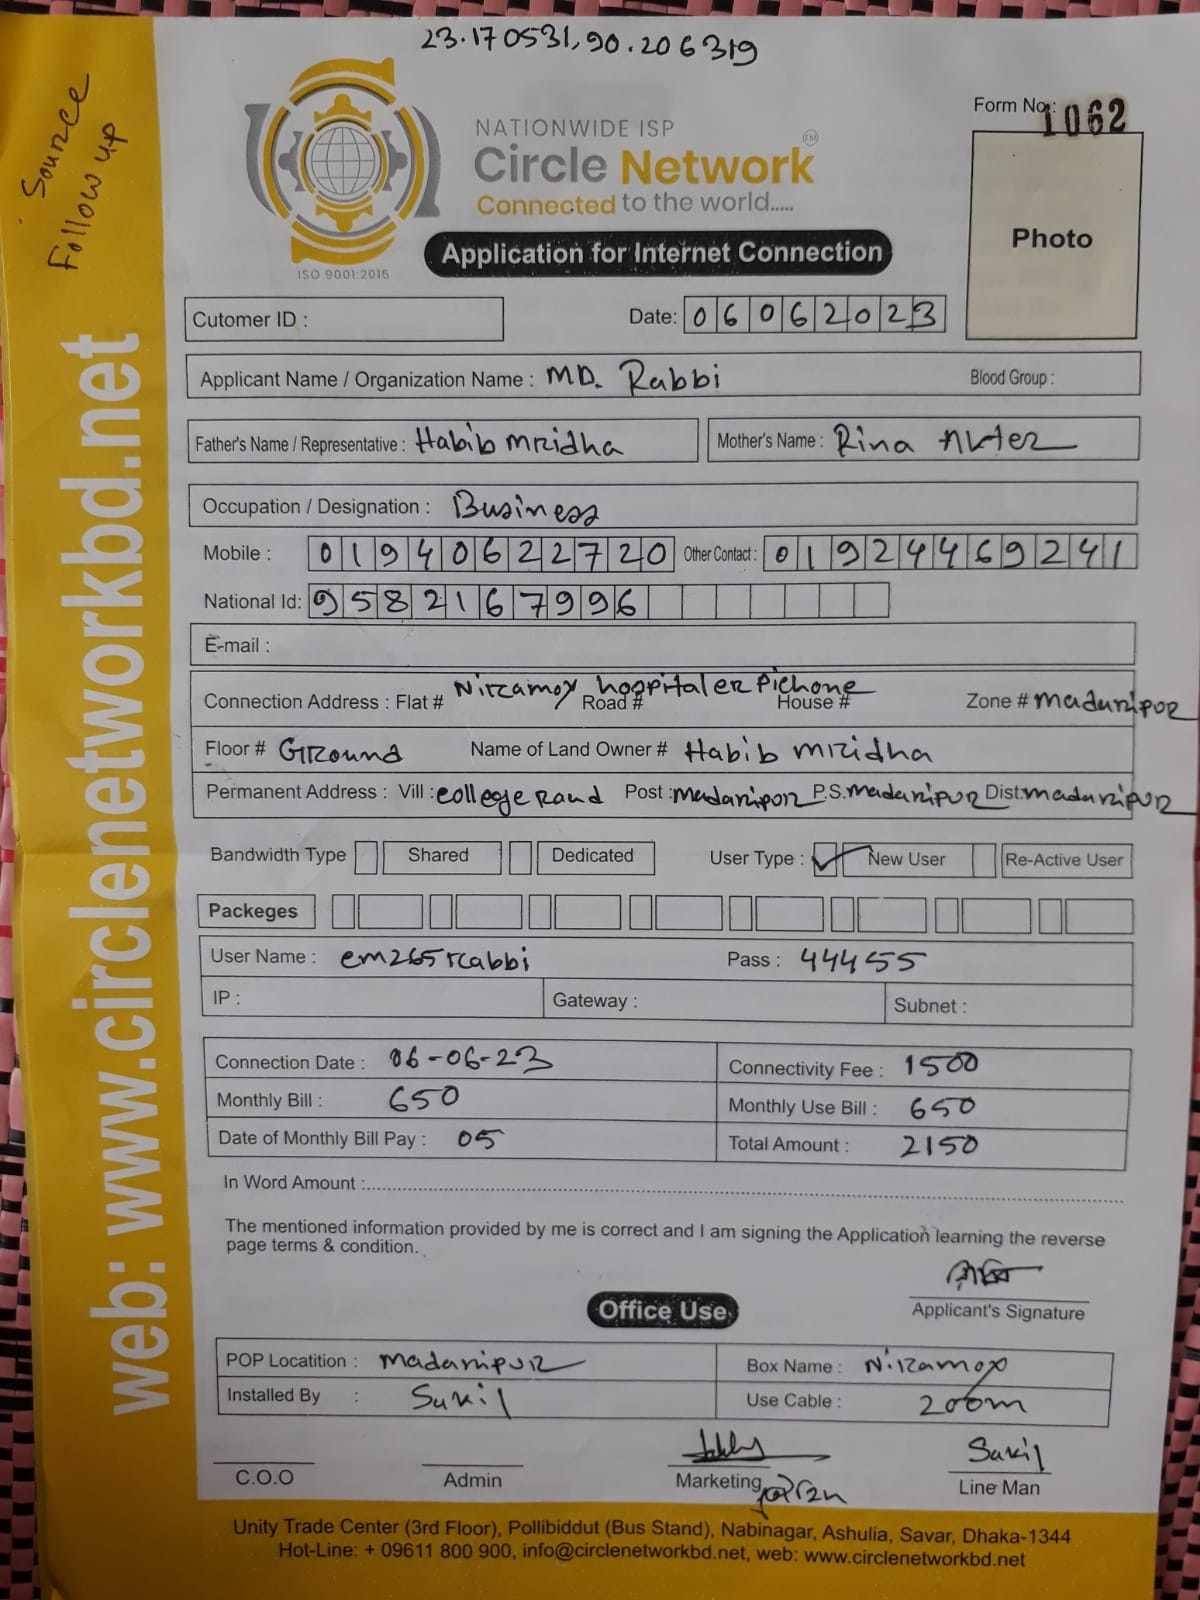 23.170531, 90.206319
Source
Follow up
Form No.: 1062
NATIONWIDE ISP
Circle Network TM
Connected to the world.....
ISO 9001:2015
Application for Internet Connection
Photo
Cutomer ID :
Date: 06062023
Applicant Name / Organization Name : MD. Rabbi Blood Group :
Father's Name / Representative : Habib Mridha Mother's Name : Rina Akter
Occupation / Designation : Business
Mobile : 01940622720 Other Contact : 01924469241
National Id: 9582167996
E-mail :
Connection Address : Flat # Niramoy hospitaler Pichone Road # House # Zone # madaripur
Floor # Ground Name of Land Owner # Habib mridha
Permanent Address : Vill : college Raod Post : madaripor P.S. madaripur Dist: madaripur
Bandwidth Type Shared Dedicated User Type : ✓ New User Re-Active User
Packeges
User Name : em265rabbi Pass : 44455
IP : Gateway : Subnet :
Connection Date : 06-06-23 Connectivity Fee : 1500
Monthly Bill : 650 Monthly Use Bill : 650
Date of Monthly Bill Pay : 05 Total Amount : 2150
In Word Amount :
The mentioned information provided by me is correct and I am signing the Application learning the reverse
page terms & condition.
Applicant's Signature
Office Use
POP Locatition : madaripur Box Name : Niramoy
Installed By : Sakil Use Cable : 200m
Sakil
C.O.O Admin Marketing Line Man
Unity Trade Center (3rd Floor), Pollibiddut (Bus Stand), Nabinagar, Ashulia, Savar, Dhaka-1344
Hot-Line: + 09611 800 900, info@circlenetworkbd.net, web: www.circlenetworkbd.net
web: www.circlenetworkbd.net